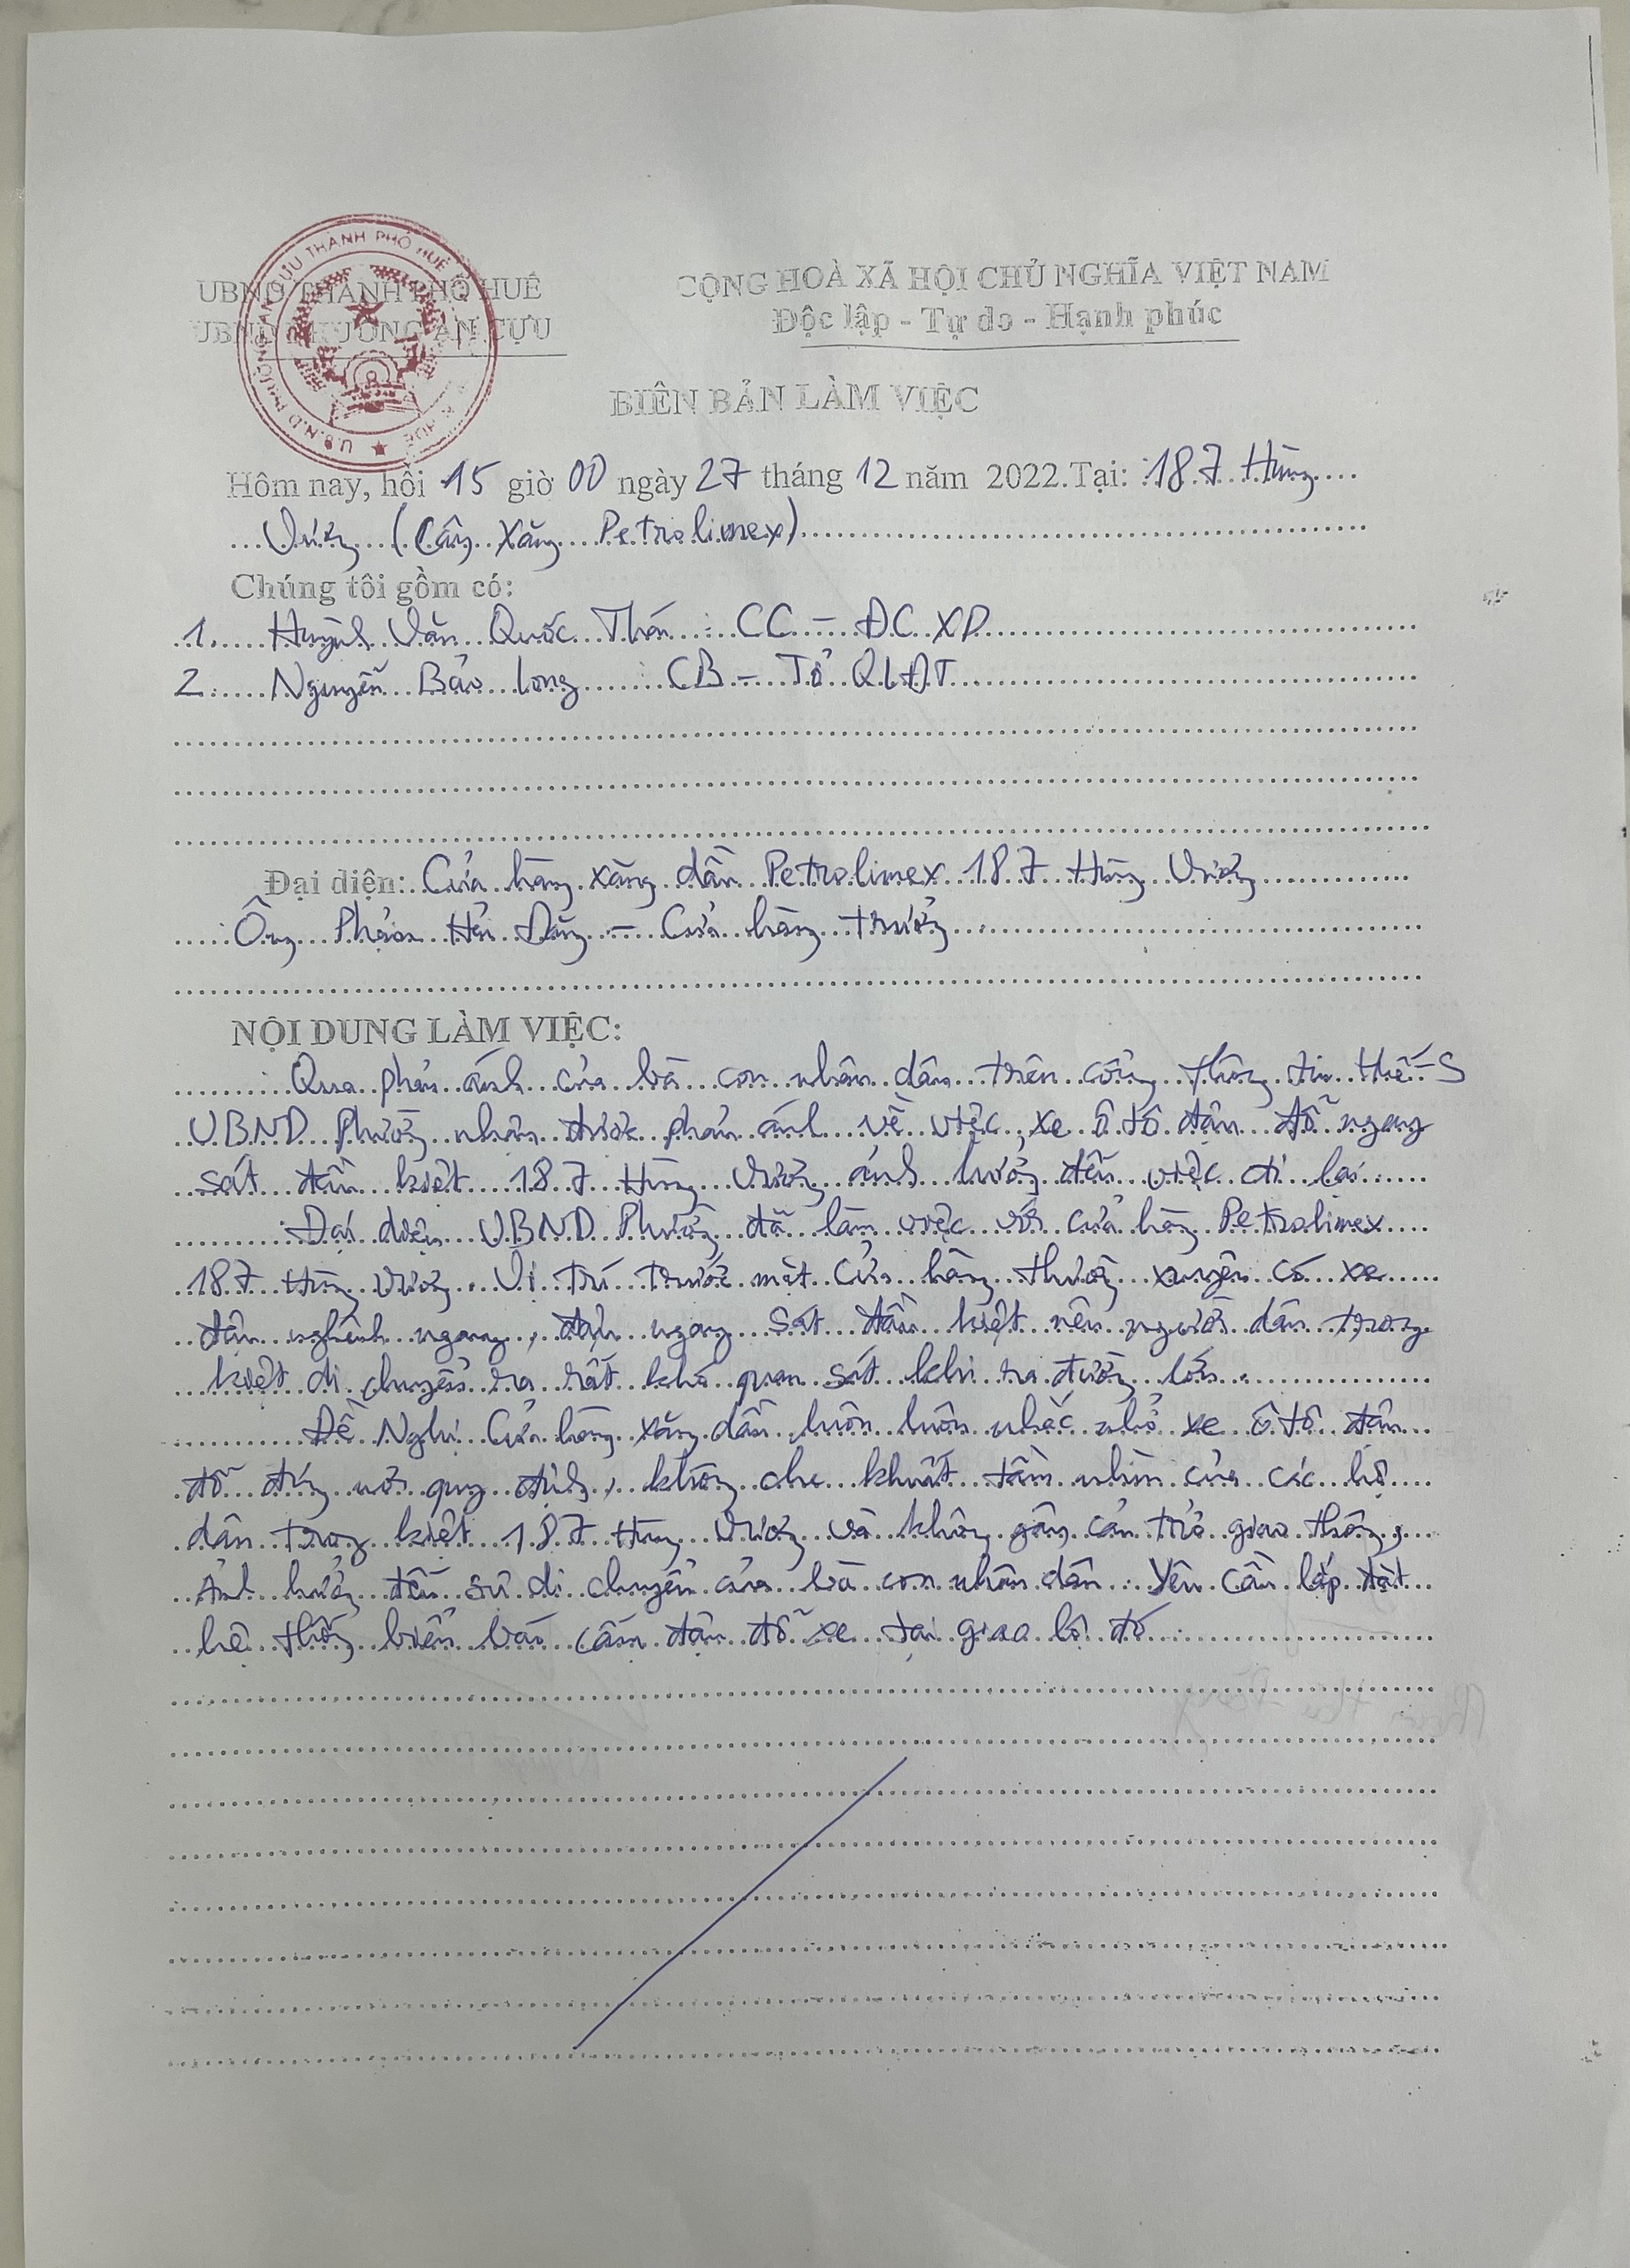 UBND THÀNH PHỐ HUẾ
UBND PHƯỜNG AN CỰU
U.B.N.D PHƯỜNG AN CỰU THÀNH PHỐ HUẾ
CỘNG HOÀ XÃ HỘI CHỦ NGHĨA VIỆT NAM
Độc lập - Tự do - Hạnh phúc
BIÊN BẢN LÀM VIỆC
Hôm nay, hồi 15 giờ 00 ngày 27 tháng 12 năm 2022. Tại: 187 Hùng
Vương (Cây Xăng Petrolimex)
Chúng tôi gồm có:
1. Huỳnh Văn Quốc : CC - ĐC XD
2. Nguyễn Bảo Long : CB - Tổ QLĐT
Đại diện: Cửa hàng xăng dầu Petrolimex 187 Hùng Vương
Ông Phạm - Cửa hàng trưởng
NỘI DUNG LÀM VIỆC:
Qua phản ánh của bà con nhân dân trên cổng thông tin
UBND Phường nhận được phản ánh về việc, xe ô tô đậu đỗ ngang
sát đầu kiệt 187 Hùng Vương ảnh hưởng đến việc đi lại
Đại diện UBND Phường đã làm việc với cửa hàng Petrolimex
187 Hùng Vương. Vị trí trước mặt Cửa hàng thường xuyên có xe
đậu nghênh ngang, đậu ngang sát đầu kiệt nên người dân trong
kiệt di chuyển ra rất khó quan sát khi ra đường lớn.
Đề Nghị Cửa hàng xăng dầu luôn luôn nhắc nhở xe ô tô đậu
đỗ đúng nơi quy định, không che khuất tầm nhìn của các hộ
dân trong kiệt 187 Hùng Vương và không gây cản trở giao thông,
Ảnh hưởng đến sự di chuyển của bà con nhân dân. Yêu cầu lắp đặt
hệ thống biển báo cấm đậu đỗ xe tại giao lộ đó